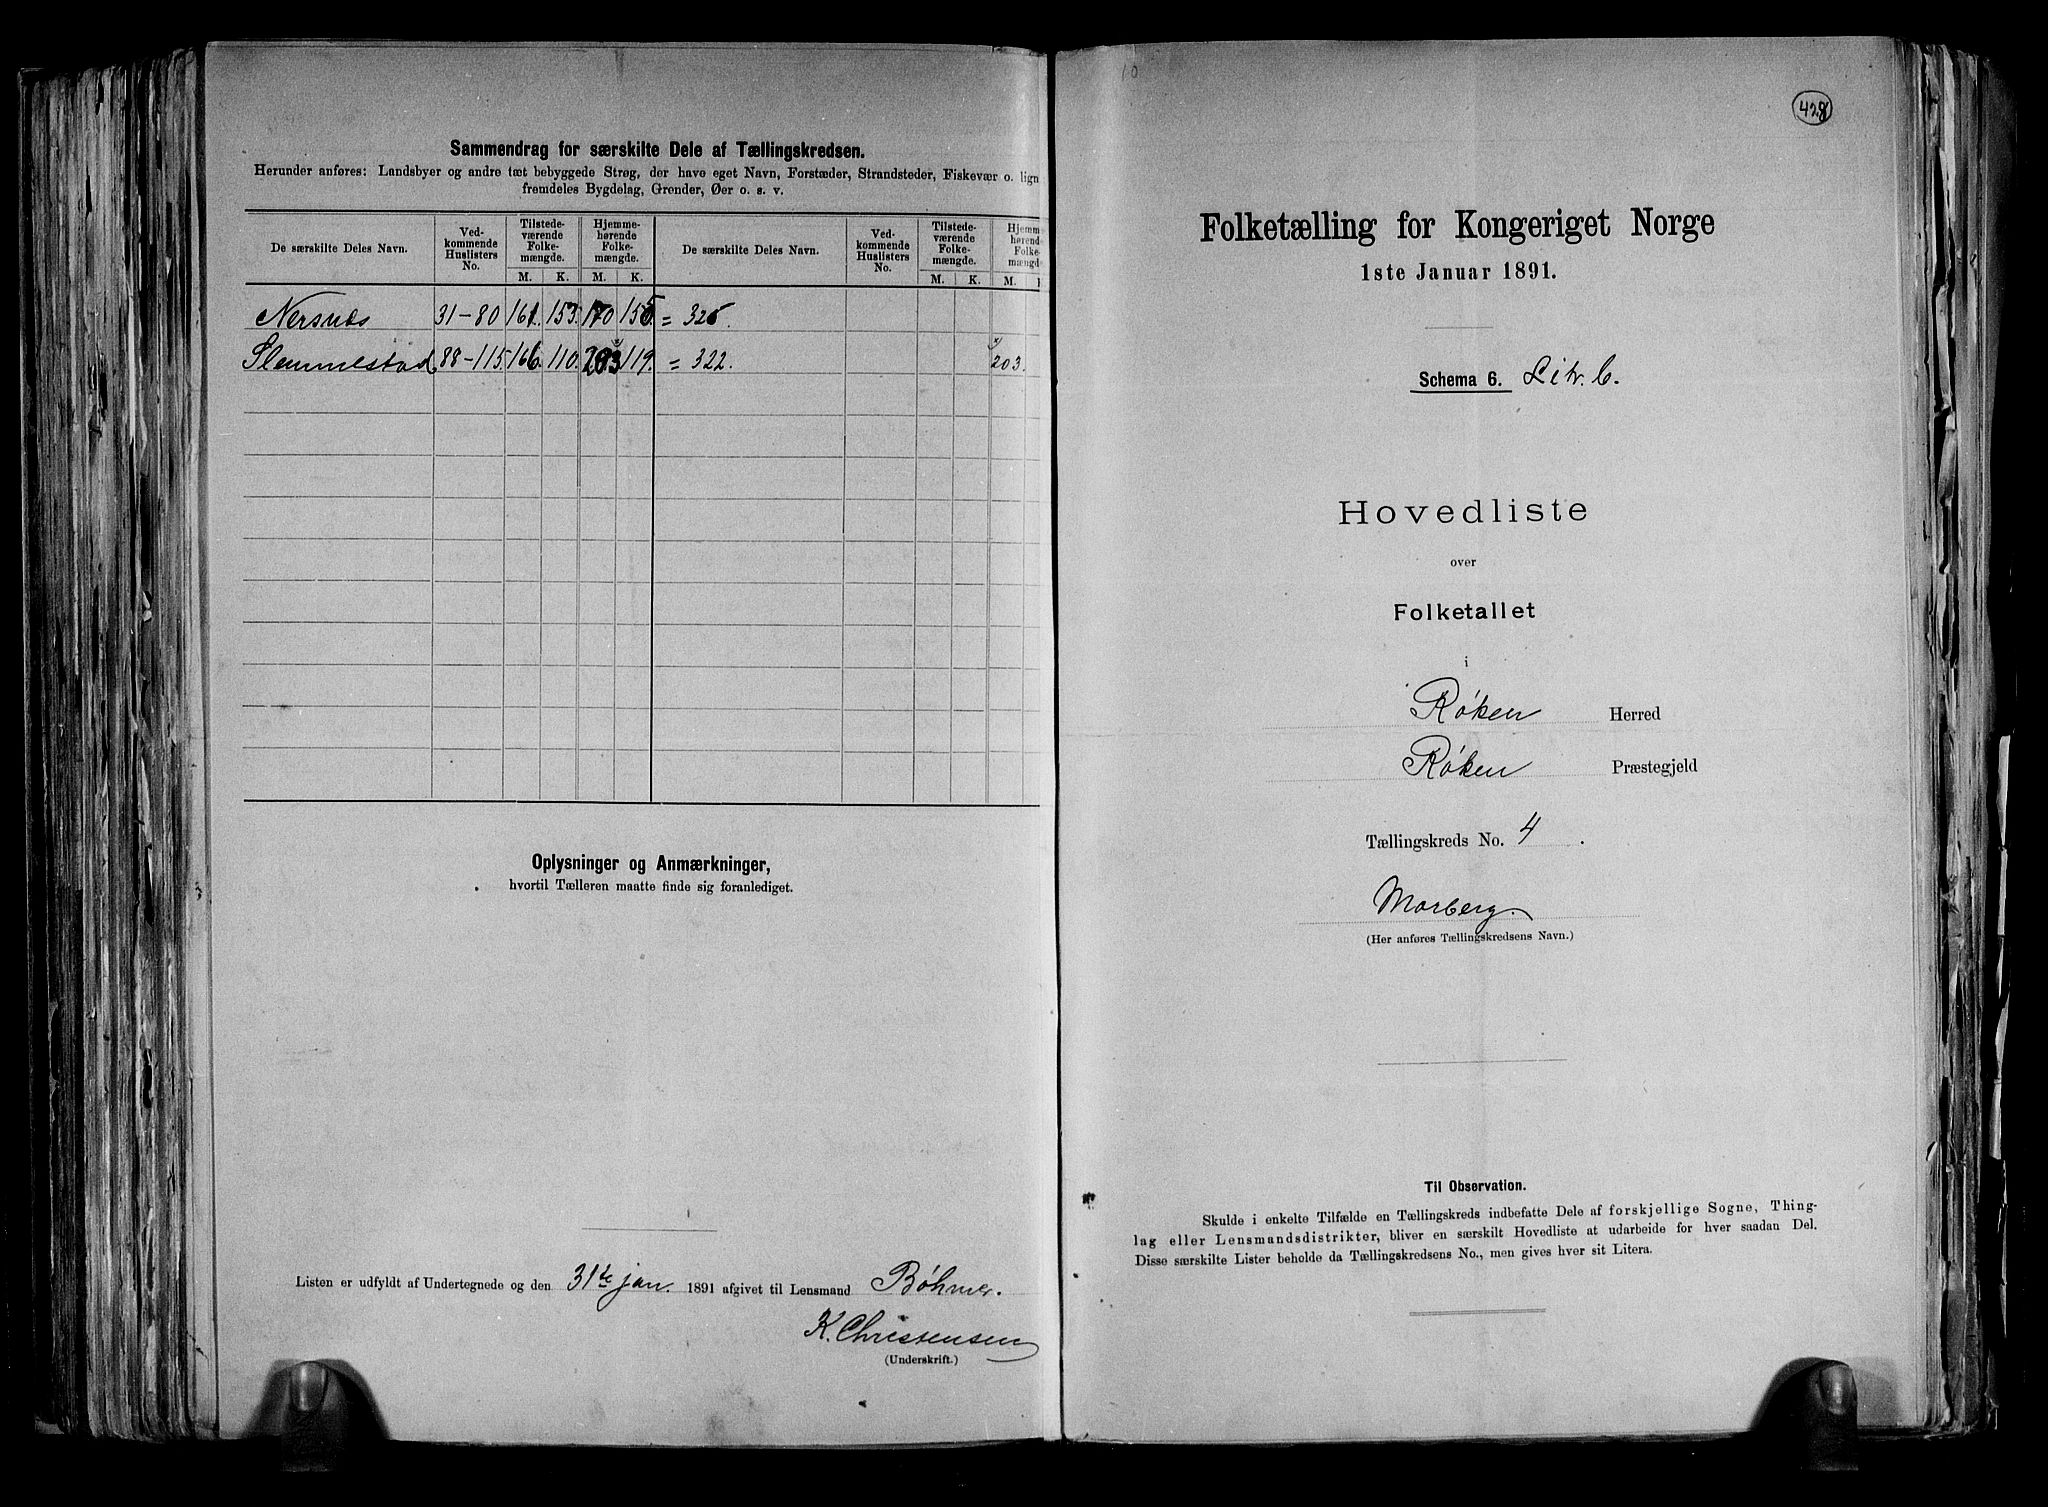 Sammendrag for særskilte Dele af Tællingskredsen.
Herunder anføres: Landsbyer og andre tæt bebyggede Strøg, der have eget Navn, Forstæder, Strandsteder, Fiskevær o. lign
fremdeles Bygdelag, Grender, Øer o. s. v.
De særskilte Deles Navn. Ved-kommende Huslisters No. Tilstede-værende Folke-mængde. Hjemme-hørende Folke-mængde. De særskilte Deles Navn. Ved-kommende Huslisters No. Tilstede-værende Folke-mængde. Hjemme-hørende Folke-mængde
M. K. M. K. M. K. M. K
Nersnes 31-80 161. 153. 170 155. = 325.
Slemmestad 88-115. 166. 110. 203 119. = 322. 203.
Oplysninger og Anmærkninger,
hvortil Tælleren maatte finde sig foranlediget.
Listen er udfyldt af Undertegnede og den 31te jan. 1891 afgivet til Lensmand Bøhmer.
K. Christensen
(Underskrift.)
10
428
Folketælling for Kongeriget Norge
1ste Januar 1891.
Schema 6. Litr. C.
Hovedliste
over
Folketallet
i
Røken Herred
Røken Præstegjeld
Tællingskreds No. 4.
Morberg.
(Her anføres Tællingskredsens Navn.)
Til Observation.
Skulde i enkelte Tilfælde en Tællingskreds indbefatte Dele af forskjellige Sogne, Thing-
lag eller Lensmandsdistrikter, bliver en særskilt Hovedliste at udarbeide for hver saadan Del.
Disse særskilte Lister beholde da Tællingskredsens No., men gives hver sit Litera.